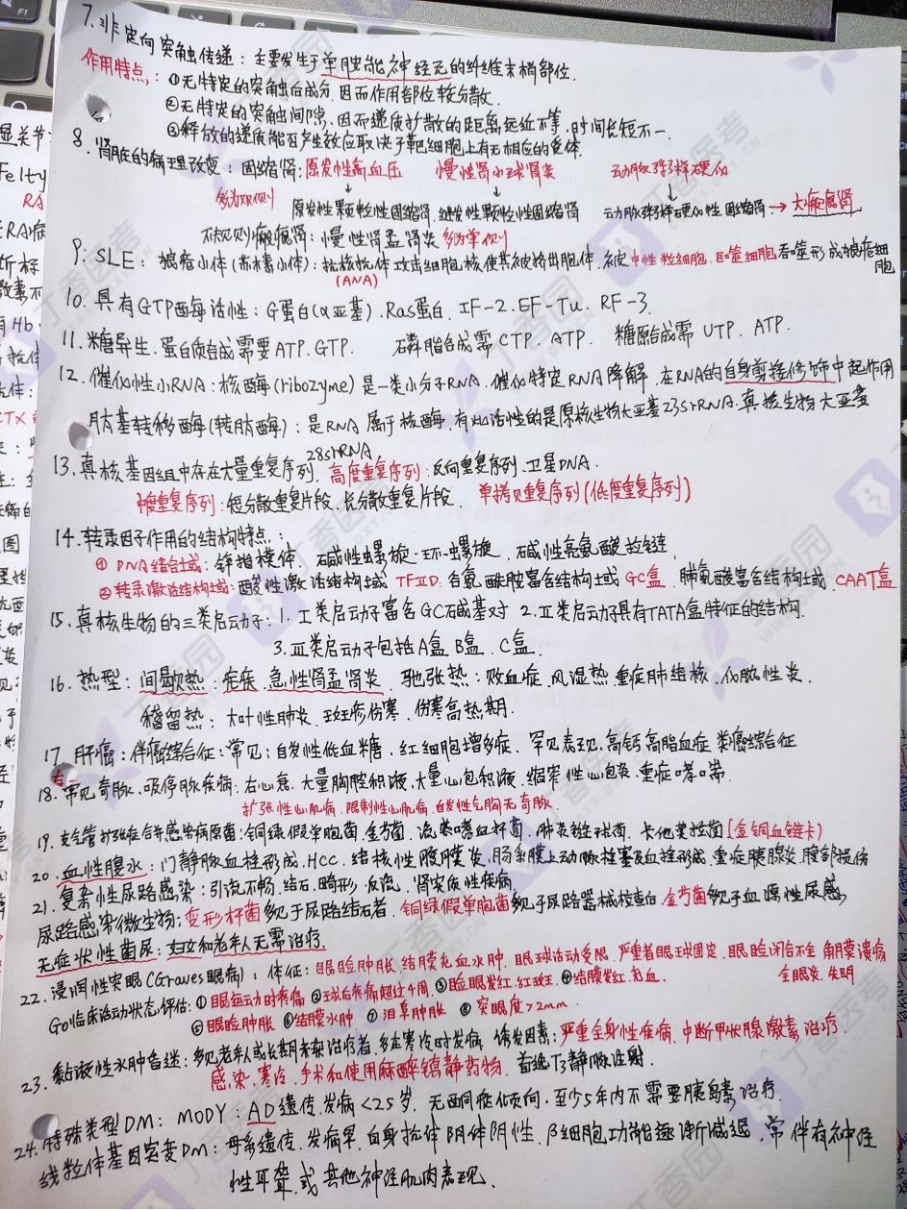 7.非定向突触传递：主要发生于单胺能神经元的纤维末梢部位.
作用特点：①无特定的突触后成分,因而作用部位较分散.
②无特定的突触间隙,因而递质扩散的距离远近不等,时间长短不一.
③释放的递质能否产生效应取决于靶细胞上有无相应的受体.
8.肾脏的病理改变：固缩肾：原发性高血压 慢性肾小球肾炎 动脉粥样硬化
多为双侧 ↓ ↓ ↓
原发性颗粒性固缩肾,继发性颗粒性固缩肾 动脉粥样硬化性固缩肾→大瘢痕肾
不规则瘢痕肾：慢性肾盂肾炎 多为单侧
9.SLE：狼疮小体(苏木素小体)：抗核抗体攻击细胞核使其被挤出胞体.被中性粒细胞.巨噬细胞吞噬形成狼疮细胞
(ANA)
10.具有GTP酶活性：G蛋白(α亚基).Ras蛋白.IF-2.EF-Tu.RF-3.
11.糖异生.蛋白质合成需要ATP.GTP. 磷脂合成需CTP.ATP. 糖原合成需UTP.ATP.
12.催化性小RNA：核酶(ribozyme)是一类小分子RNA.催化特定RNA降解.在RNA的自身剪接修饰中起作用
肽基转移酶(转肽酶)：是RNA属于核酶.有此活性的是原核生物大亚基23SrRNA.真核生物大亚基
28SrRNA
13.真核基因组中存在大量重复序列.高度重复序列:反向重复序列.卫星DNA.
中度重复序列:短分散重复片段.长分散重复片段. 单拷贝重复序列(低度重复序列)
14.转录因子作用的结构特点：
①DNA结合域：锌指模体. 碱性螺旋-环-螺旋. 碱性亮氨酸拉链
②转录激活结构域：酸性激活结构域TFⅡD.谷氨酰胺富含结构域GC盒.脯氨酸富含结构域CAAT盒
15.真核生物的三类启动子：1.Ⅰ类启动子富含GC碱基对 2.Ⅱ类启动子具有TATA盒特征的结构.
3.Ⅲ类启动子包括A盒.B盒.C盒.
16.热型：间歇热：疟疾.急性肾盂肾炎. 驰张热：败血症.风湿热.重症肺结核.化脓性炎.
稽留热：大叶性肺炎.斑疹伤寒.伤寒高热期.
17.肝癌：伴癌综合征：常见：自发性低血糖.红细胞增多症. 罕见表现.高钙高脂血症 类癌综合征
18.常见奇脉.吸停脉疾病：右心衰.大量胸腔积液.大量心包积液.缩窄性心包炎.重症哮喘.
扩张性心肌病.限制性心肌病.自发性气胸无奇脉.
19.支气管扩张症合并感染病原菌：铜绿假单胞菌.金葡菌.流感嗜血杆菌.肺炎链球菌.卡他莫拉菌(金铜血链卡)
20.血性腹水：门静脉血栓形成.HCC.结核性腹膜炎.肠系膜上动脉栓塞及血栓形成.重症胰腺炎.腹部损伤
21.复杂性尿路感染：引流不畅.结石.畸形.反流.肾实质性疾病.
尿路感染微生物：变形杆菌多见于尿路结石者.铜绿假单胞菌多见于尿路器械检查后.金葡菌多见于血源性尿感
无症状性菌尿：妇女和老年人无需治疗.
22.浸润性突眼(Graves眼病)：体征：眼睑肿胀.结膜充血水肿.眼球活动受限.严重者眼球固定.眼睑闭合不全 角膜溃疡
全眼炎.失明
GO临床活动状态评估：①眼运动时疼痛 ②球后疼痛超过4周.③眼睑发红.红斑 ④结膜发红.充血.
⑤眼睑肿胀 ⑥结膜水肿 ⑦泪阜肿胀 ⑧突眼度>2mm.
23.黏液性水肿昏迷：多见老年人或长期未获治疗者.多在寒冷时发病.诱发因素：严重全身性疾病.中断甲状腺激素治疗.
感染.寒冷.手术和使用麻醉镇静药物. 首选T3静脉注射
24.特殊类型DM：MODY：AD遗传.发病<25岁.无酮症倾向.至少5年内不需要胰岛素治疗.
线粒体基因突变DM：母系遗传.发病早.自身抗体阴性.β细胞功能逐渐减退.常伴有神经
性耳聋.或其他神经肌肉表现.